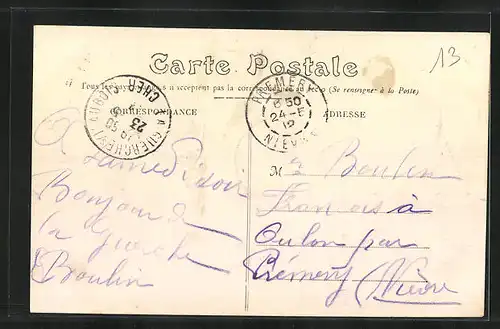 13
Carte Postale
Tous les pays n'acceptent pas la correspondance au recto (Se renseigner à la Poste)
CORRESPONDANCE
ADRESSE
LA GUERCHE-S-L'AUBOIS CHER
23
PRÉMERY
6 50
24 - 5
12
NIÈVRE
A samedi soir
Bonjour de
la Guerche
Boulin
M Boulin
François à
Oulon par
Prémery (Nièvre